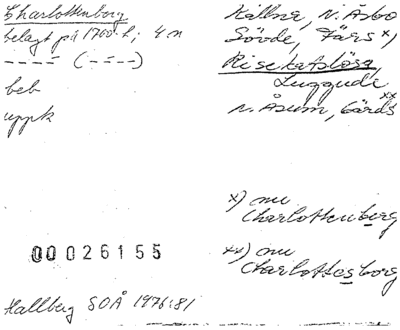 Charlottenborg
belagt på 1700-t; 4 n
---- (----)
beb
uppk
Källna, N. Åsbo
Sövde, Färs x)
Risekatslösa,
Luggude
xx)
N. Åsum, Gärds
x) nu
Charlottenberg
xx) nu
Charlottesborg
00026155
Hallberg SOÅ 1976:81